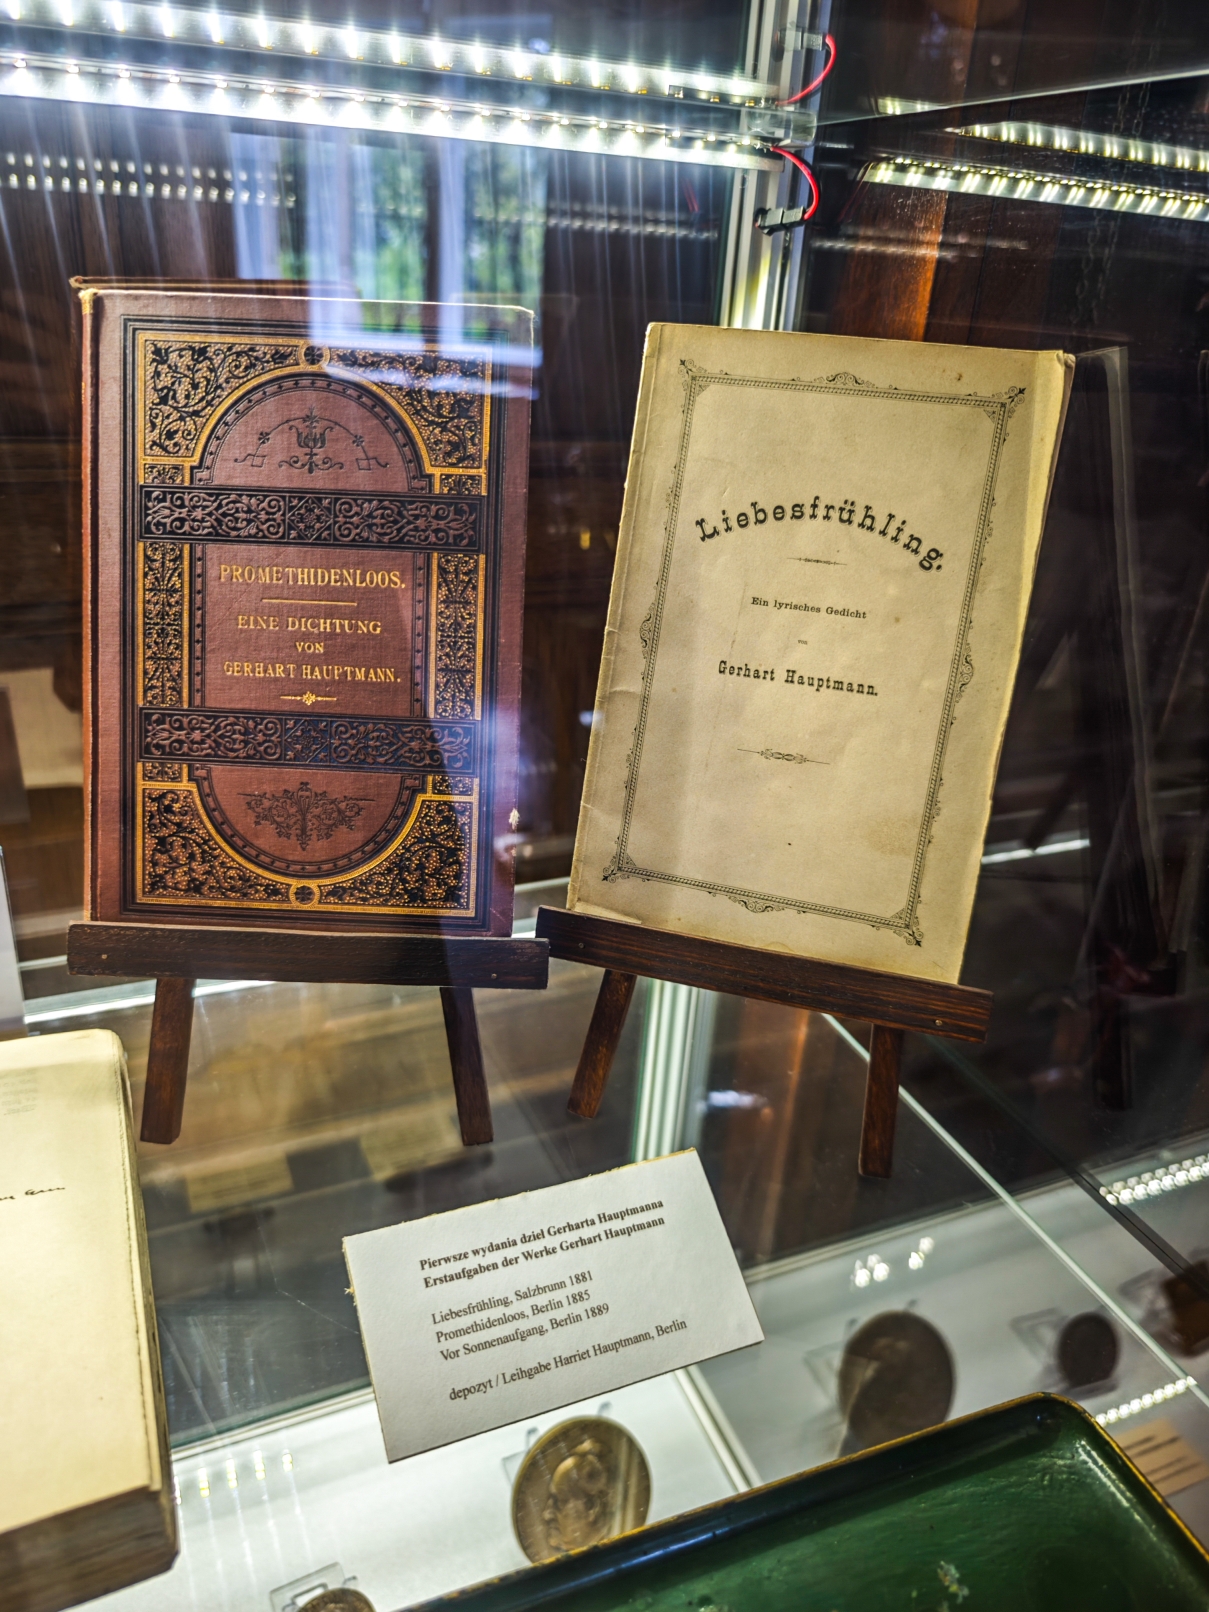 PROMETHIDENLOOS.
EINE DICHTUNG
VON
GERHART HAUPTMANN.
Liebesfrühling.
Ein lyrisches Gedicht
von
Gerhart Hauptmann.
Pierwsze wydania dzieł Gerharta Hauptmanna
Erstaufgaben der Werke Gerhart Hauptmann
Liebesfrühling, Salzbrunn 1881
Promethidenloos, Berlin 1885
Vor Sonnenaufgang, Berlin 1889
depozyt / Leihgabe Harriet Hauptmann, Berlin